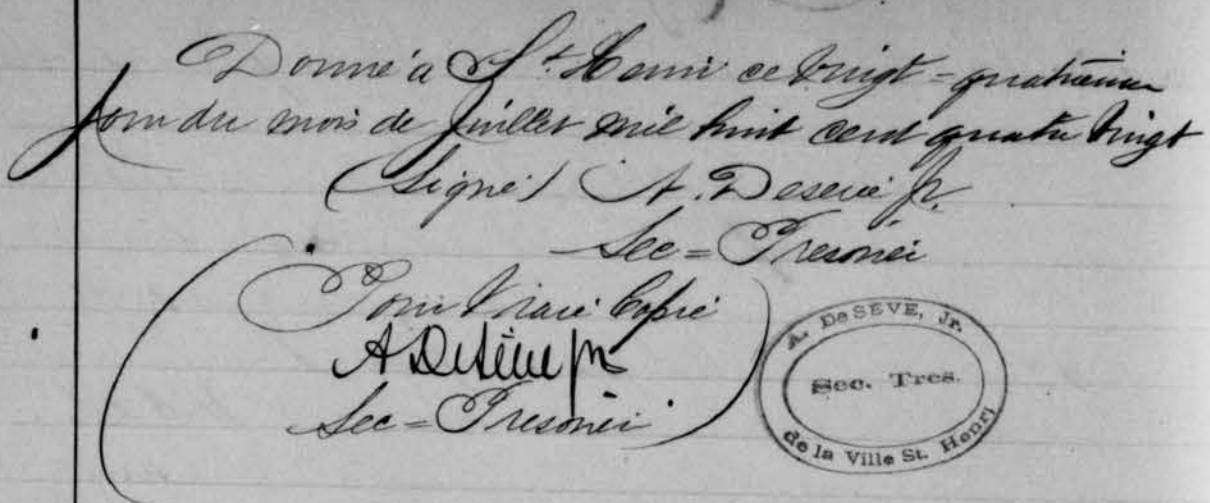 Donné a St. Henri ce vingt-quatrième
jour du mois de Juillet mil huit cent quatre vingt
(Signé) A. Desève Jr.
Sec=Tresorier
Pour Vraie Copie
A DeSève Jr
Sec=Tresorier
A. DeSEVE, Jr.
Sec. Tres.
de la Ville St. Henri